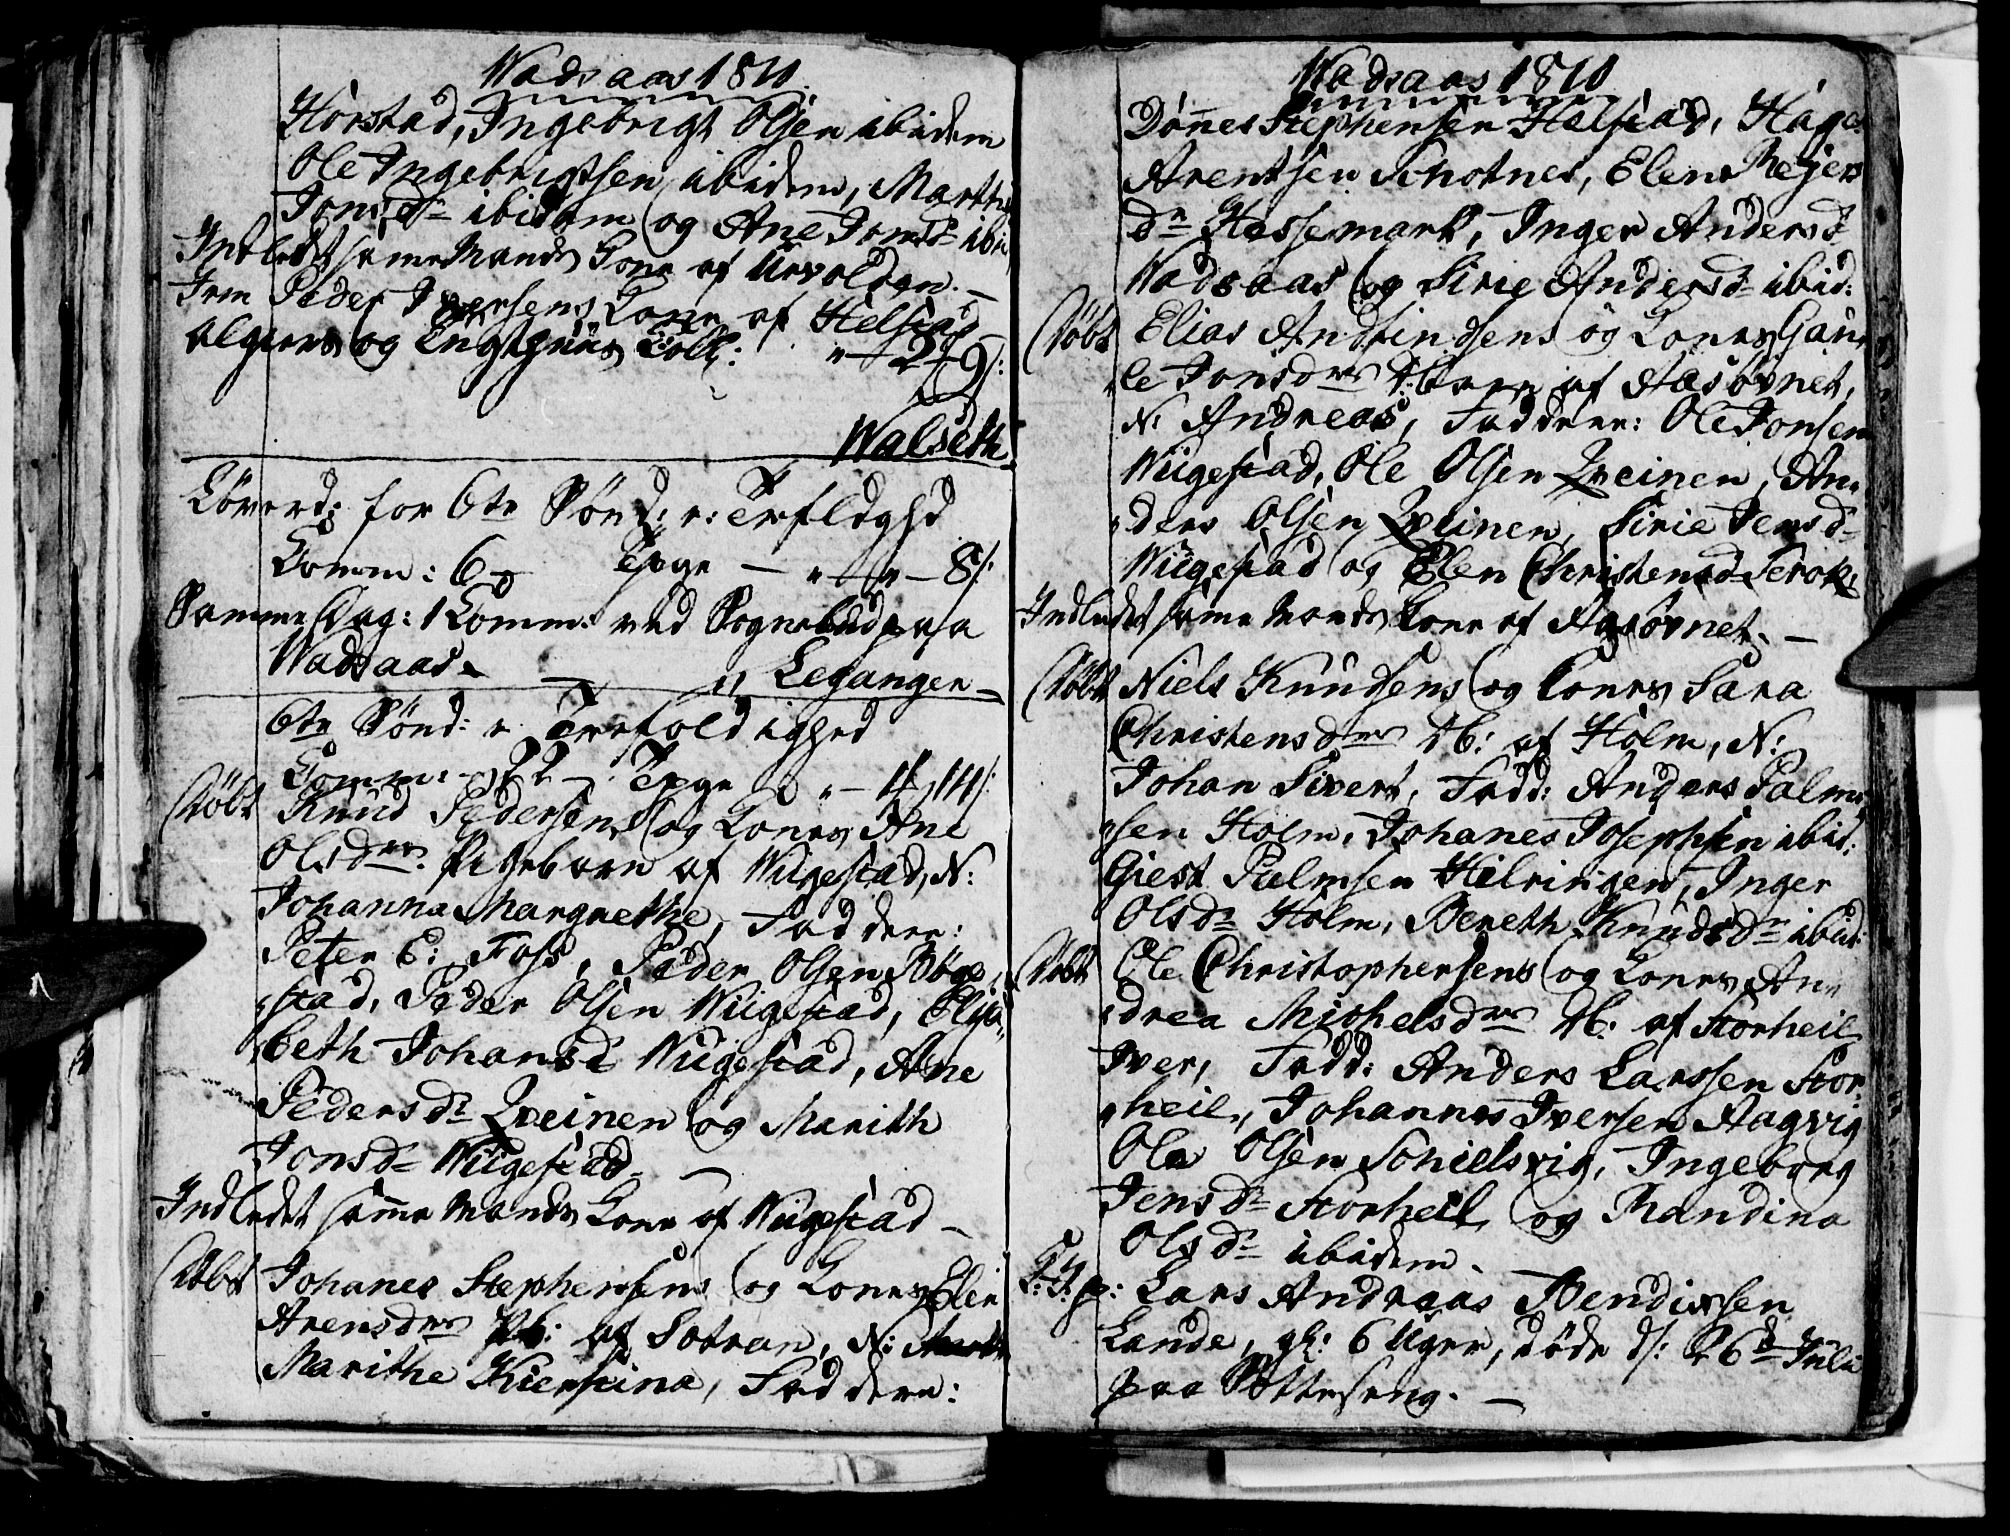 Wadsaas 1810.
Horstad, Ingebrigt Olsen ibidem
Ole Ingebrigtsen ibidem, Marthe
Jonsdr ibidem og Ane Jonsdr ibid
Indledet same Mands Kone af Urvolden. —
Item Peder Iversens Kone af Helstad
og 2 — 9 s:
Walseth
Løverd: for 6te Sønd: e: Trefoldghd
Comm: 6 — Tavle — " — " — 8 s:
Samme Dag: 1 Comm: ved Sognebud paa
Wadsaas. — " Leganger —
6te Sønd: e Trefoldighed
Comm: 22 — Tavle " — 4 14 s:
Døbt Knud Pedersens og Kones Ane
Olsdrs Pigebarn af Wiigestad, N:
Johanna Margrethe, Faddere:
Peter C: Foss, Peder Olsen Bøge-
stad, Peder Olsen Wiigestad, Elisa-
beth Johansdr Wiigestad, Ane
Pedersdr Qveinen og Marith
Jonsdr Wiigestad. —
Indledet samme Mands Kone af Wiigestad —
Døbt Johanes Stephensens og Kones Elen
Arensdrs Pb: af Sotran, N:
Marithe Kierstina, Faddere:
Wadsaas 1810
Dønnes Stephensen Halstad, Hage
Arentsen Schotnes, Elen Mejers
dr Hessemark, Inger Andersdr
Wadsaas og Sirie Andersdr ibid:
Døbt Elias Andfindsens og Kones Gun-
le Jonsdrs Dbarn af Aasøvnet,
N: Andreas, Faddere: Ole Jonsen
Wiigestad, Ole Olsen Qveinen, An-
ders Olsen Qveinen, Sirie Jensdr
Wiigestad og Elen Christensd
Indledet same Mands Kone af Aasøvnet. —
Døbt Niels Knudsens og Kones Sara
Christensdrs Db: af Holm, N:
Johan Sivert, Fadd: Anders Palm-
sen Holm, Johanes Josephsen ibid:
Giest Palmsen Hilringen, Inger
Olsdr Holm, Bereth Knudsdr ibid:
Døbt Ole Christophersens og Kones An-
drea Michelsdrs Db: af Storheil
Iver, Fadd: Anders Larssen Stor-
heil, Johannes Iversen Aagvig
Ole Olsen Schielsvig, Ingeborg
Jensdr Storheil og Randina
Olsdr ibidem.
J: J: p: Lars Andreas Bendixsen
Lande, gl: 6 Uger, døde d: 26d Juli
paa Sotteseng. —